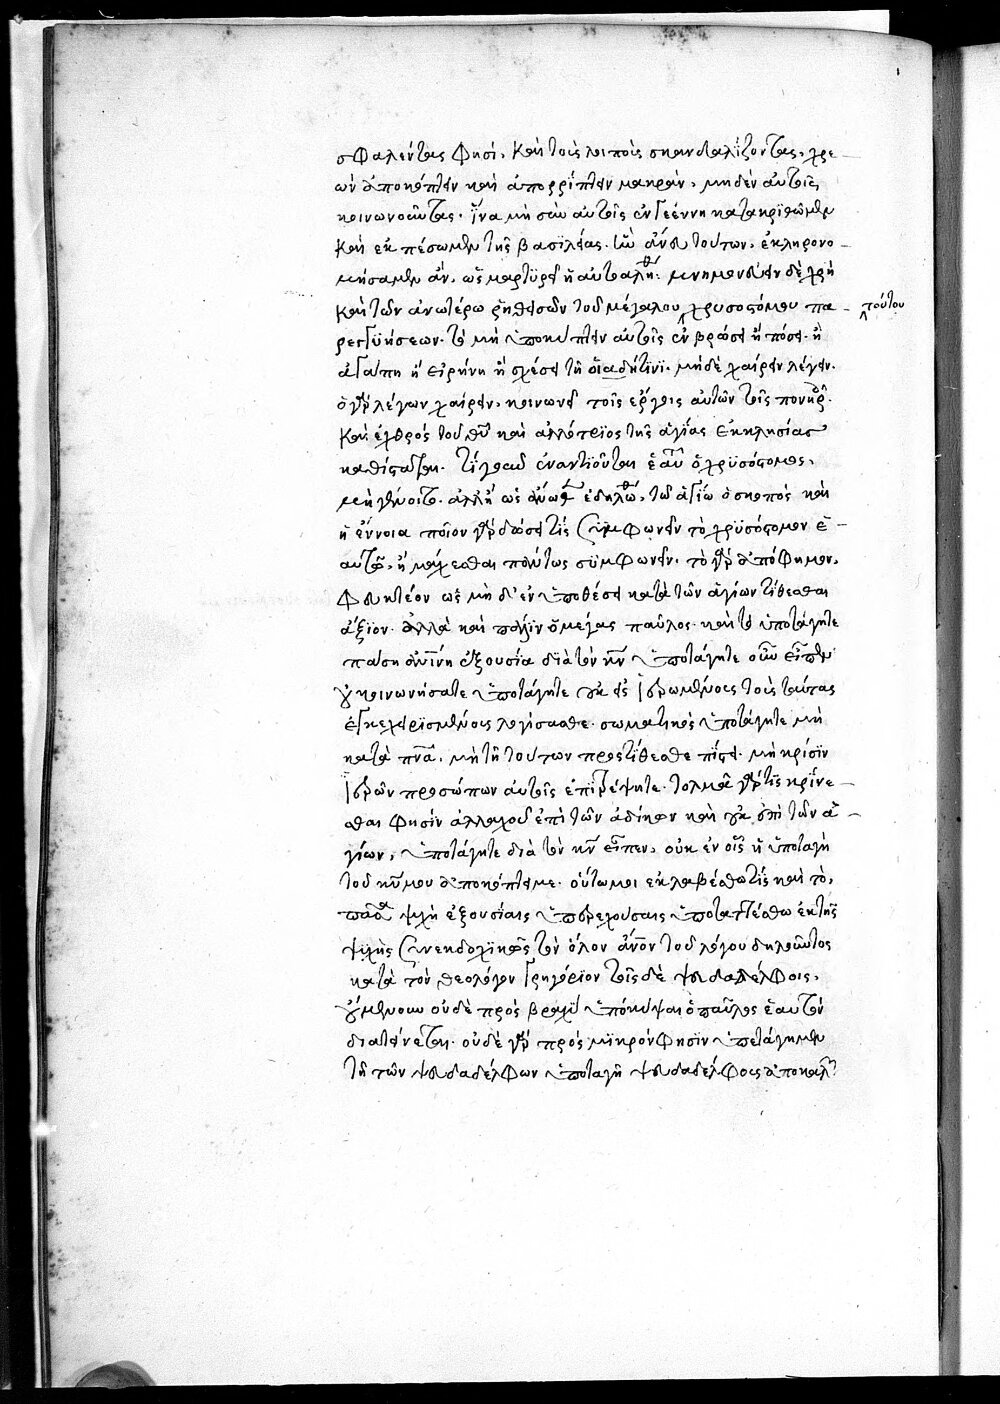 σφαλέντας φησί, καὶ τοὺς λοιποὺς σκανδαλίζοντας, χρε-
ὼν ἀποκόπτειν καὶ ἀπορρίπτειν μακρὰν, μηδὲν αὐτοῖς
κοινωνοῦντας. ἵνα μὴ σὺν αὐτοῖς ἐν γεέννῃ κατακριθῶμεν
καὶ ἐκπέσωμεν τῆς βασιλείας. ἣν ἄνευ τούτων, ἐκληρονο-
μήσαμεν ἂν, ὡς μαρτυρεῖ ἡ αὐτοαλήθ: μνημονεύειν δὲ χρὴ
καὶ τῶν ἀνωτέρω ῥηθεισῶν τοῦ μεγάλου χρυσοστόμου πα-
τούτου
ραινέσεων. τὸ μὴ ὑποκύπτειν αὐτοῖς ἐν βρώσει ἢ πόσει. ἢ
ἀγάπη ἢ εἰρήνη ἢ σχέσει τῇ οἱαδήτινι. μηδὲ χαίρειν λέγειν.
ὁ γὰρ λέγων χαίρειν, κοινωνεῖ τοῖς ἔργοις αὐτῶν τοῖς πονηρ.
καὶ ἐχθρὸς τοῦ θυ καὶ ἀλλότριος τῆς ἁγίας ἐκκλησίας
καθίσταται. τί γοῦν ἐναντιοῦται ἑαυ ὁ χρυσόστομος,
μὴ γένοιτο. ἀλλ' ὡς ἄνω ἐδηλώθ, τῶ ἁγίω ὁ σκοπὸς καὶ
ἡ ἔννοια ποῖον γὰρ δώσει τίς συμφωνεῖν τὸ χρυσόστομον ἑ-
αυτῶ, ἢ μάχεσθαι πολύτως συμφωνεῖν. τὸ γὰρ ἀπόφημον,
φευκτέον ὡς μὴ δ' ἐν ὑποθέσει κατὰ τῶν ἁγίων τίθεσθαι
ἄξιον. ἀλλὰ καὶ πάλιν ὁ μέγας παῦλος. καὶ τὸ ὑποτάγητε
πάσῃ ἀνίνῃ ἐξουσία διὰ τὸν κν ὑποτάγητε οὖν εἶπεν
οὐ κοινωνήσατε ὑποτάγητε οὐκ εἰς ἱερωμένους τοὺς ταύτας
ἐγκεχειρισμένους λογίσασθε. σωματικῶς ὑποτάγητε μὴ
κατὰ πνα, μὴ τῇ τούτων προστίθεσθε πίστει. μὴ κρίσιν
ἱερῶν προσώπων αὐτοῖς ἐπιτρέψητε. τολμᾶ γάρ τις κρίνε-
σθαι φησὶν ἀλλαχοῦ ἐπὶ τῶν ἀδίκων καὶ οὐκ ἐπὶ τῶν ἁ-
γίων, ὑποτάγητε διὰ τὸν κν εἶπεν, οὐκ ἐν οἷς ἡ ὑποταγὴ
τοῦ κυ μου ἀποκόπτει με. οὕτω μοι ἐκλαβέσθω τίς καὶ τὸ,
πᾶσα ψυχὴ ἐξουσίαις ὑπερεχούσαις ὑποτασσέσθω ἐκ τῆς
ψυχῆς συνεκδοχικῶς τὸν ὅλον ἄνον τοῦ λόγου δηλοῦντος
κατὰ τὸν θεολόγον Γρηγόριον τοῖς δὲ ψευδαδέλφοις,
οὐ μένουν οὐδὲ πρὸς βραχὺ ὑποκύψαι ὁ παῦλος ἑαυτὸν
διατείνεται. οὐδὲ γὰρ πρὸς μικρόν φησιν ὑπετάγημεν
τῇ τῶν ψευδαδέλφων ὑποταγῇ ψευδαδέλφους ἀποκαλ